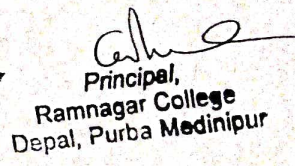 Principal,
Ramnagar College
Depal, Purba Medinipur